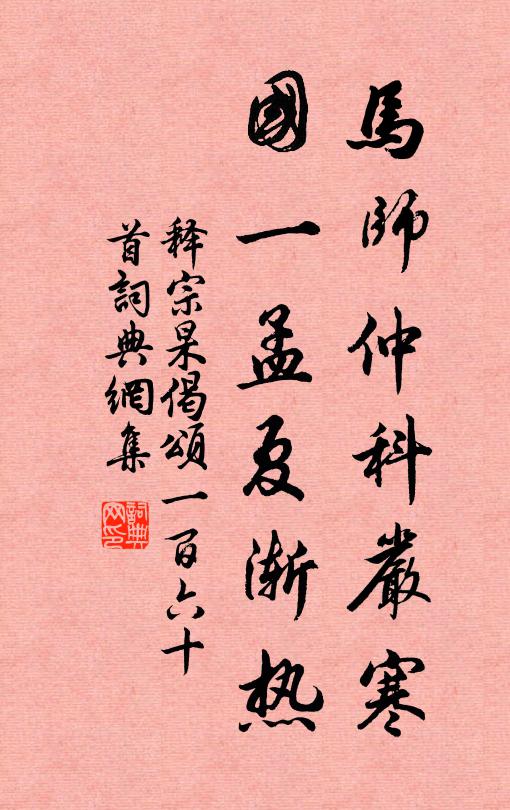 馬師仲科嚴寒
國一孟夏漸热
释宗杲偈頌一百六十
首詞典網集
詞典网印